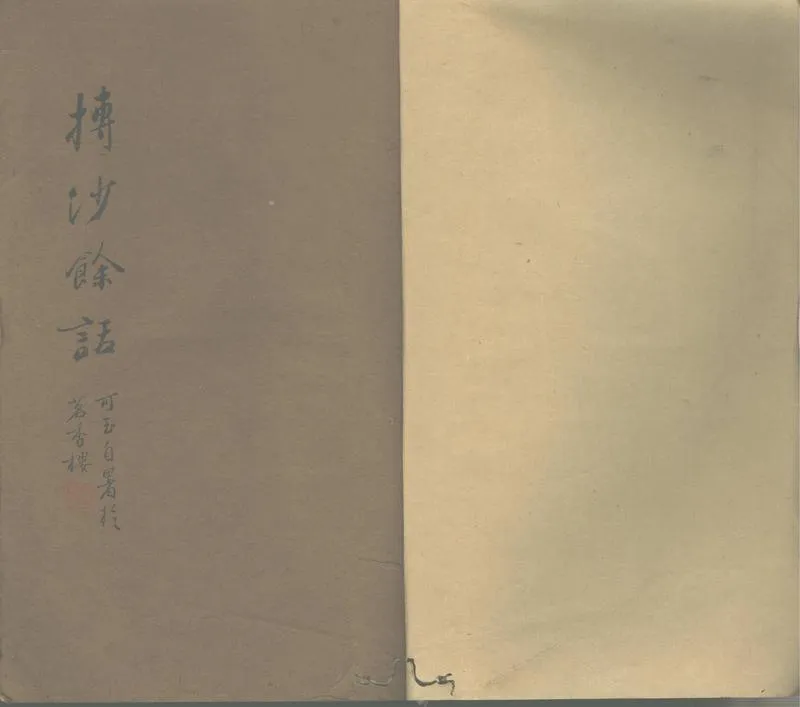 搏沙餘話
可玉自署於
茗香樓